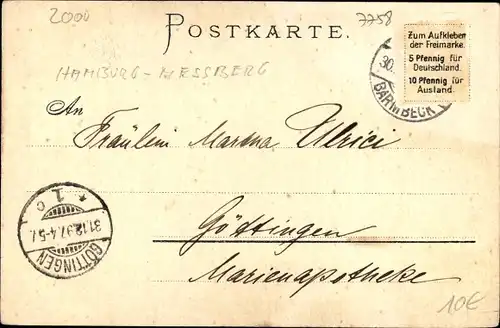 2000
7758
POSTKARTE.
Zum Aufkleben
der Freimarke.
5 Pfennig für
Deutschland.
10 Pfennig für
Ausland.
30.
BARMBECK
HAMBURG - HESSBERG
An
Fräulein Martha Ulrici
Göttingen
Marienapotheke
GÖTTINGEN
31.12.97.4-5 N.
* 1 c
10€